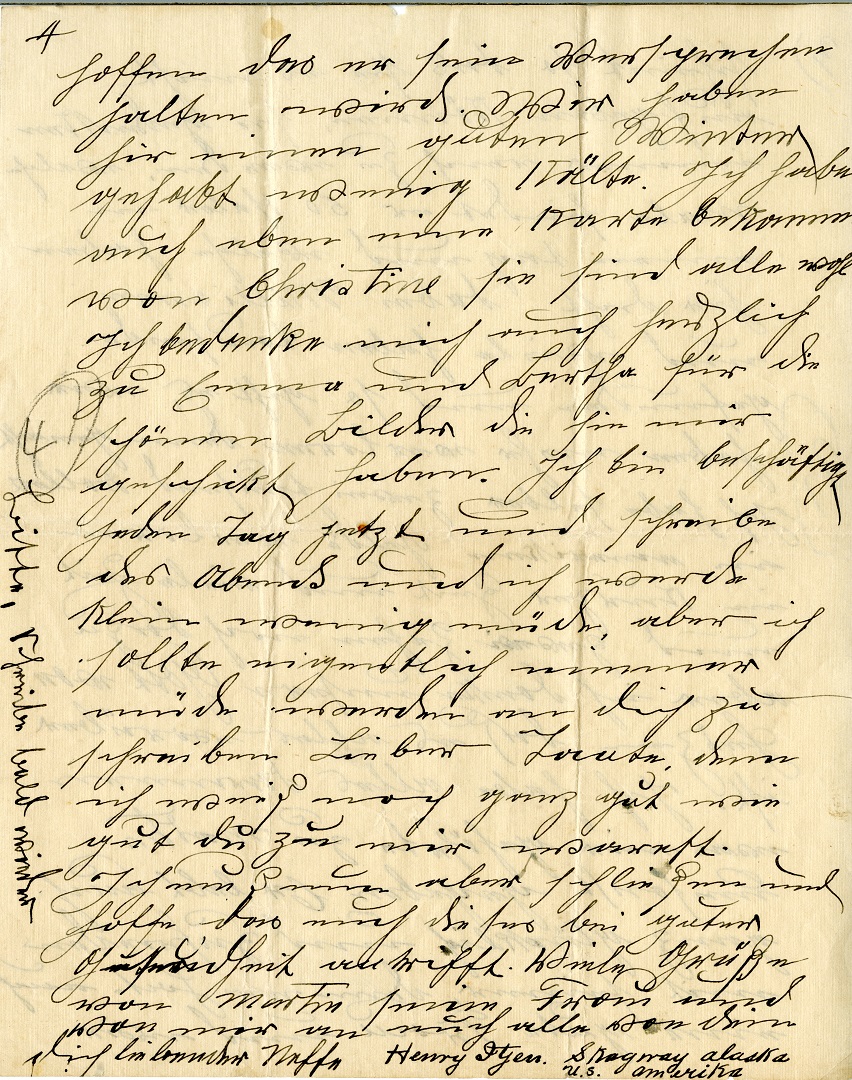 4
hoffen das er sein Versprechen
halten wird. Wir haben
hir einen guten Winter
gehabt wenig Kälte. Ich habe
auch eben eine Karte bekomme
von Christine sie sind alle wohl
Ich bedanke mich auch herzlich
zu Emma und Bertha für die
schönen Bilder die sie mir
geschickt haben. Ich bin beschäftigt
jeden Tag jetzt und schreibe
des Abends und ich werde
klein wenig müde, aber ich
sollte eigentlich nimmer
müde werden an dich zu
schreiben Lieber Tante, denn
ich weiß noch ganz gut wie
gut du zu mir warest.
Ich muß nun aber schließen und
hoffe das euch dieses bei guter
Gesundheit antrifft. Viele Grüße
von Martin seine Frau und
von mir an euch alle von dein
dich liebender Neffe Henry Itjen. Skagway alaska
U.S. amerika
4
Bitte, schreibe bald wieder